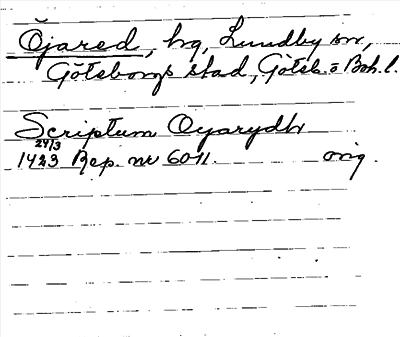 Öjared, hg, Lundby sn,
Göteborgs stad, Göteb. o Boh. l.
Scriptum Oyarydh
24/3
1423 Rep. nr 6011. orig.